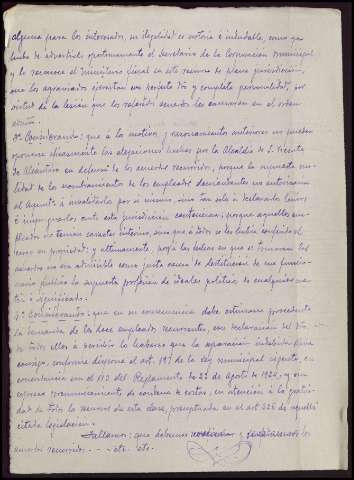 alguna para los interesados, su ilegalidad es notoria e indudable, como ya
hubo de advertirlo oportunamente el Secretario de la Corporación municipal
y lo reconoce el Ministerio fiscal en este recurso de plena jurisdicción,
que los agraviados ejercitan con perfecto dro y completa personalidad, por
virtud de la lesión que los relatados acuerdos les causaron en el orden
3º Considerando: que a los motivos y razonamientos anteriores no pueden
oponerse eficazmente las alegaciones hechas por la Alcaldía de S. Vicente
de Alcántara en defensa de los acuerdos recurridos, porque la supuesta nu-
lidad de los nombramientos de los empleados demandantes no autorizaba
al Ayuntº a invalidarlos por sí mismo, sino tan solo a declararlos lesivos
e impugnarlos ante esta jurisdicción contenciosa; porque aquellos em-
pleados no tenían carácter interino, sino que a todos se les había conferido el
cargo en propiedad; y últimamente, porque las fechas en que se tomaron los
acuerdos no era admisible como justa causa de destitución de un funcio-
nario público la supuesta profesión de ideales políticos de cualquier ma-
tiz o significado.
4º Considerando: que en su consecuencia debe estimarse procedente
la demanda de los doce empleados recurrentes, con declaración del dro
de todos ellos a percibir los haberes que la reparación indebida trae
consigo, conforme dispone el art. 197 de la ley municipal vigente, en
concordancia con el 113 del Reglamento de 23 de agosto de 1924, y sin
expreso pronunciamiento de condena de costas, en atención a la gratui-
dad de todos los recursos de esta clase, preceptuada en el art. 226 de aquella
citada legislación.
Fallamos: que debemos revocar y revocamos los
acuerdos recurridos. - - - etc. etc.